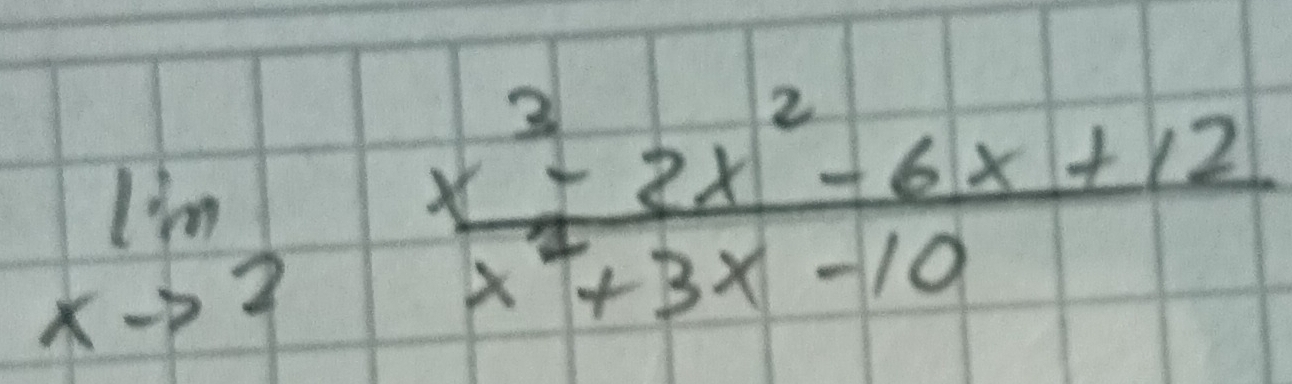 lim x³ - 2x² - 6x + 12
x -> 2 x² + 3x - 10